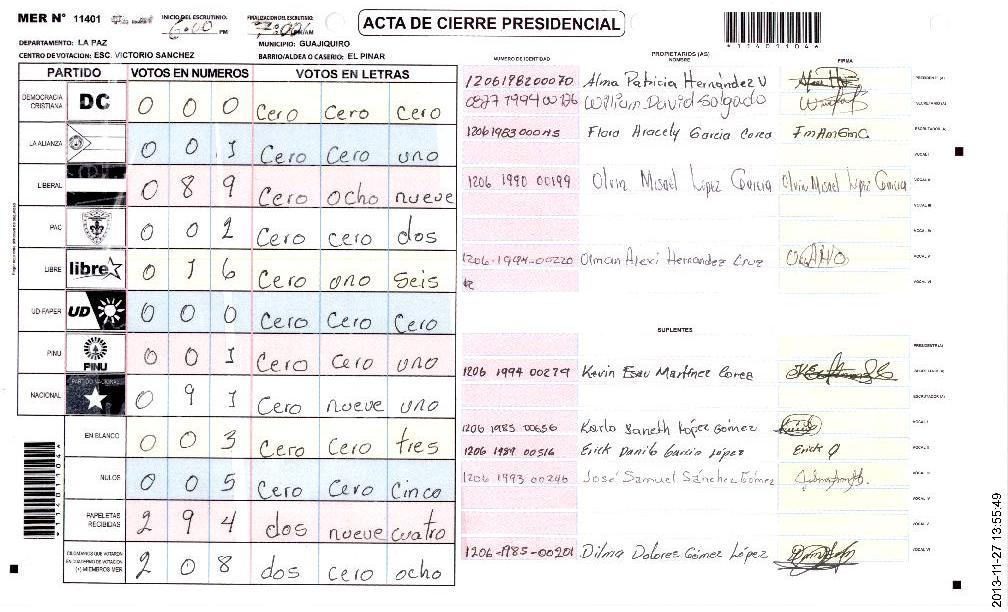 MER N° 11401
INICIO DEL ESCRUTINIO:
6:00 PM
FINALIZACION DEL ESCRUTINIO:
ACTA DE CIERRE PRESIDENCIAL
DEPARTAMENTO: LA PAZ
MUNICIPIO: GUAJIQUIRO
CENTRO DE VOTACION: ESC. VICTORIO SANCHEZ
BARRIO/ALDEA O CASERIO: EL PINAR
PARTIDO VOTOS EN NUMEROS VOTOS EN LETRAS
DEMOCRACIA CRISTIANA DC 0 0 0 Cero Cero Cero
LA ALIANZA 0 0 1 Cero Cero uno
LIBERAL 0 8 9 Cero ocho nueve
PAC 0 0 2 Cero cero dos
LIBRE libre 0 1 6 Cero uno Seis
UD-FAPER UD 0 0 0 Cero Cero Cero
PINU PINU 0 0 1 Cero Cero uno
NACIONAL PARTIDO NACIONAL 0 9 1 Cero nueve uno
EN BLANCO 0 0 3 Cero Cero tres
NULOS 0 0 5 Cero Cero Cinco
PAPELETAS RECIBIDAS 2 9 4 dos nueve cuatro
CIUDADANOS QUE VOTARON EN CUADERNO DE VOTACION (+) MIEMBROS MER 2 0 8 dos cero ocho
*11401104*
NUMERO DE IDENTIDAD PROPIETARIOS (AS) NOMBRE FIRMA
1206198200070 Alma Patricia Hernández V PRESIDENTE (A)
William David Salgado SECRETARIO (A)
Flora Aracely Garcia Corea FmAmGmC. ESCRUTADOR (A)
VOCAL I
1206 1990 00199 Olvin Misael López Garcia Olvin Misael López Garcia VOCAL II
VOCAL III
VOCAL IV
1206-1994-00220 Olman Alexi Hernandez Cruz VOCAL V
VOCAL VI
SUPLENTES
PRESIDENTE (A)
1206 1994 00279 Kevin Esau Martínez Corea SECRETARIO (A)
ESCRUTADOR (A)
1206 1985 00656 Karla Janeth López Gómez VOCAL I
1206 1989 00516 Erick Danilo Garcia López Erick VOCAL II
1206 1993 00246 José Samuel Sánchez Gómez VOCAL III
VOCAL IV
VOCAL V
1206-1985-00201 Dilma Dolores Gómez López VOCAL VI
2013-11-27 13:55:49